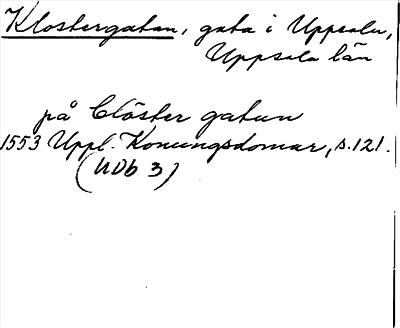 Klostergatan, gata i Uppsala,
Uppsala län
på Clöster gatun
1553 Uppl. Konungsdomar, s. 121.
(UDb 3)